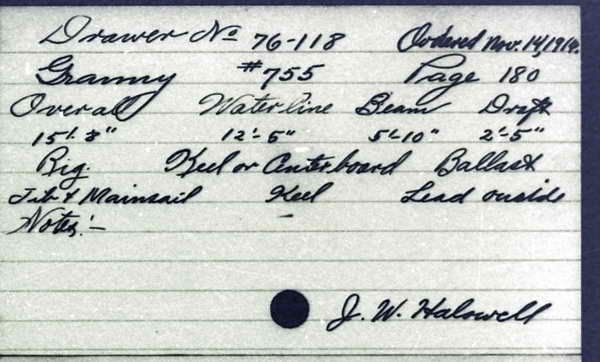 Drawer No 76-118 Ordered Nov. 14, 1914.
Granny #755 Page 180
Overall Waterline Beam Draft
15'-8" 12'-5" 5'-10" 2'-5"
Rig. Keel or Centerboard Ballast
Jib & Mainsail Keel Lead outside
Notes:-
J. W. Halowell